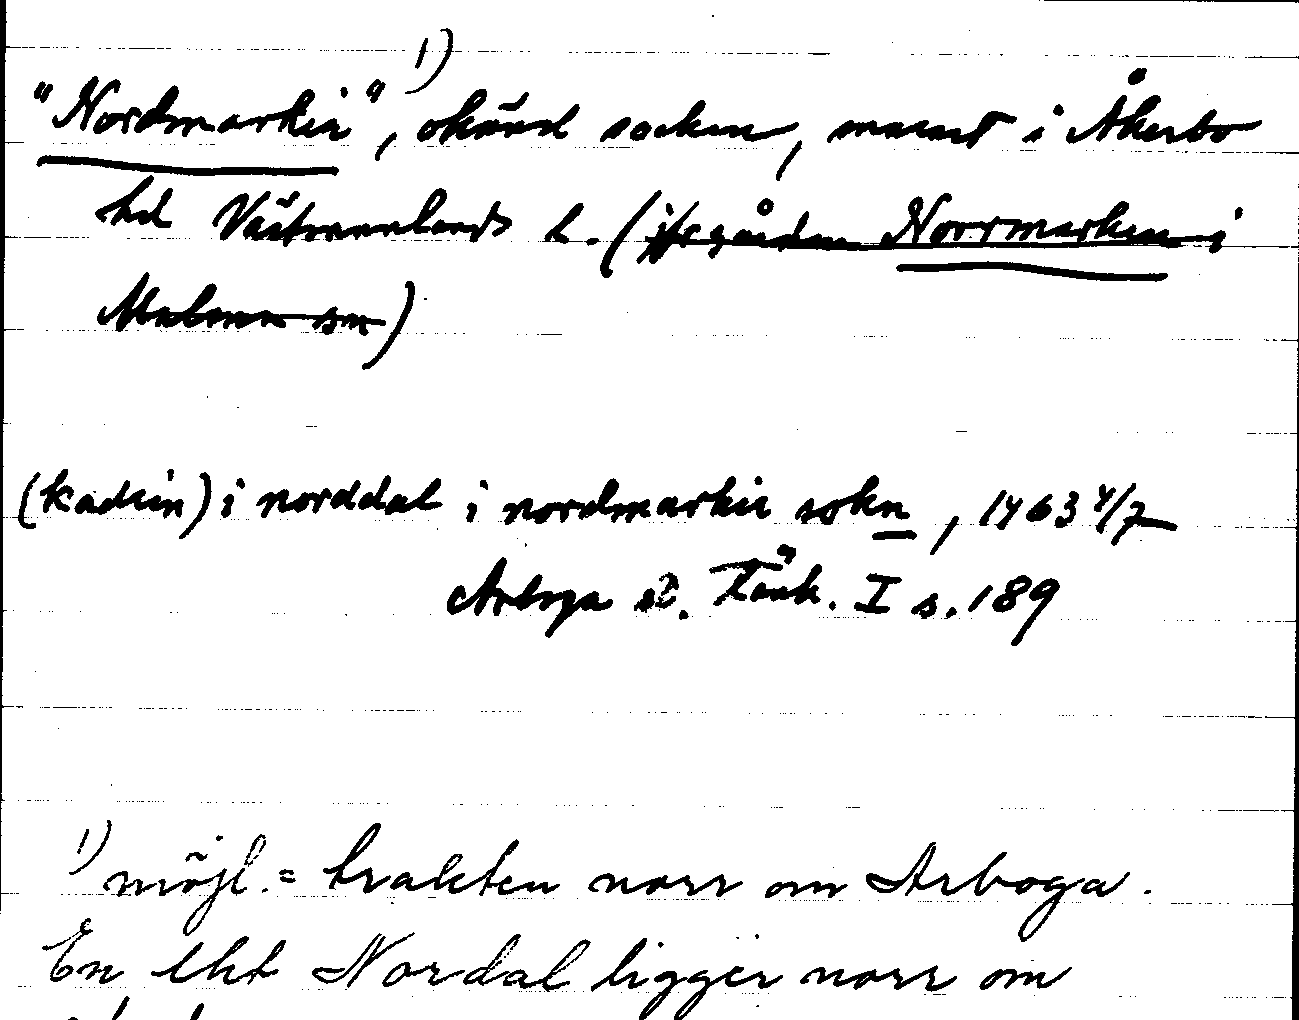 "Nordmarkir" 1), okänd socken, snarast i Åkerbo
hd Västmanlands l. (jfr gården Norrmarken i
Malma sn)
(kadrin) i norddal i nordmarkir sokn, 1463 4/7
Arboga st. Tänk. I s. 189
1) möjl. = trakten norr om Arboga.
En, Nordal ligger norr om